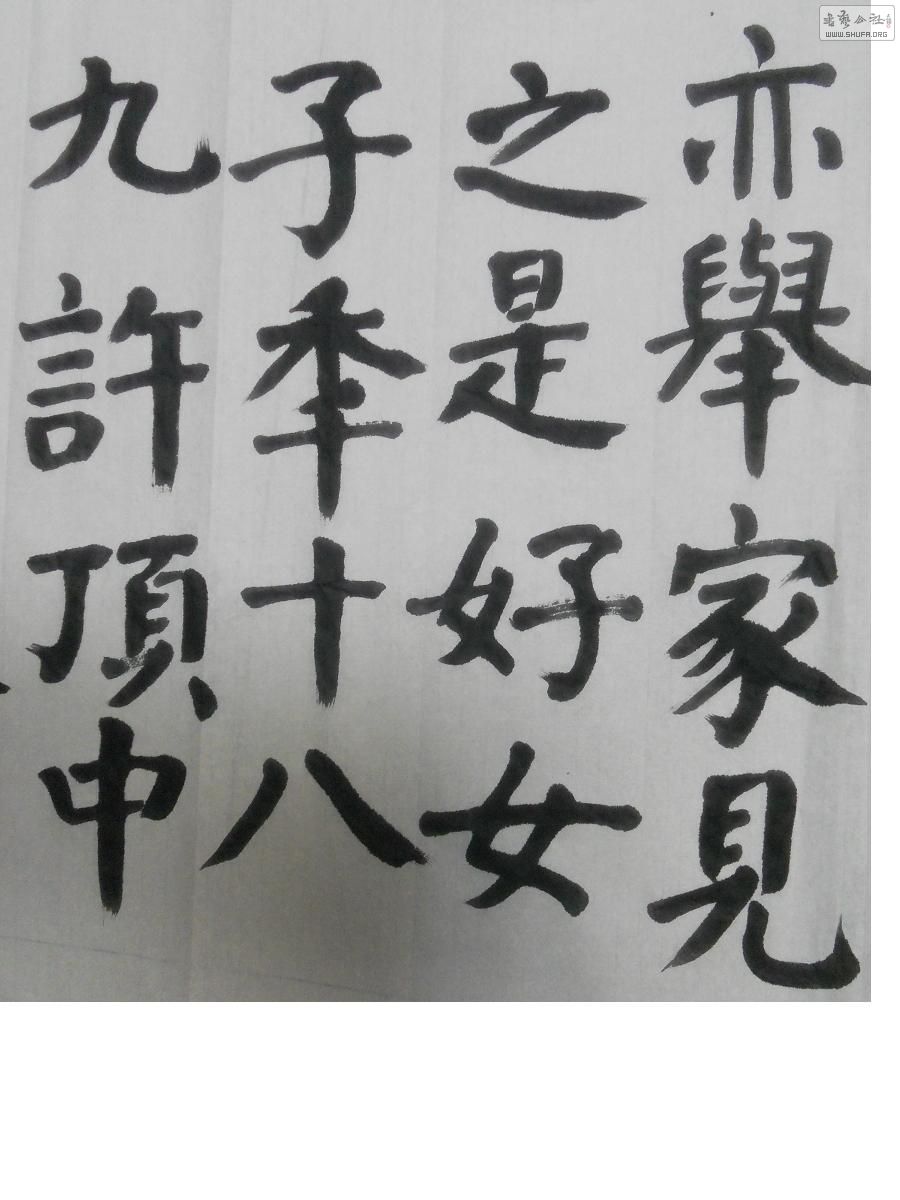 亦舉家見
之是好女
子秊十八
九許頂中
書藝公社
WWW.SHUFA.ORG